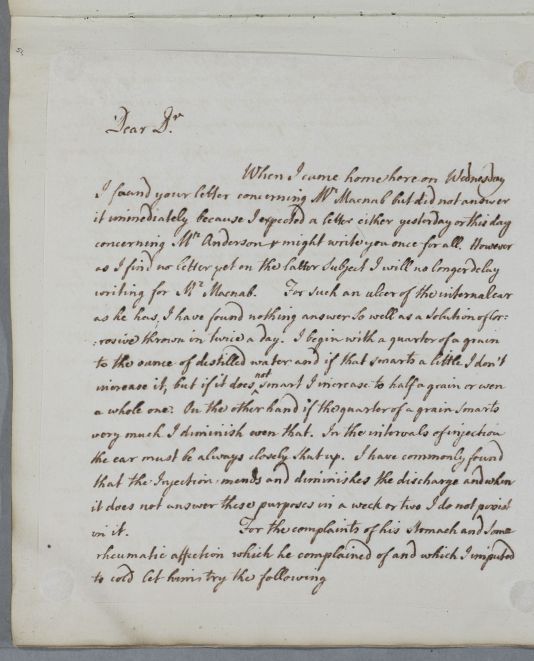 Dear Dr.
When I came home here on Wednesday
I found your letter concerning Mr Macnab but did not answer
it immediately because I expected a letter either yesterday or this day
concerning Mrs Anderson & might write you once for all. However
as I find no letter yet on the latter subject I will no longer delay
writing for Mr Macnab. For such an ulcer of the internal ear
as he has, I have found nothing answer so well as a solution of Cor:
:rosive thrown in twice a day. I begin with a quarter of a grain
to the ounce of distilled water and if that smarts a little I don't
increase it, but if it does not smart I increase to half a grain or even
a whole one. On the other hand if the quarter of a grain smarts
very much I diminish even that. In the intervals of injection
the ear must be always closely shut up. I have commonly found
that the Injection mends and diminishes the discharge and when
it does not answer these purposes in a week or two I do not persist
in it. For the complaints of his stomach and some
rheumatic affection which he complained of and which I imputed
to cold let him try the following